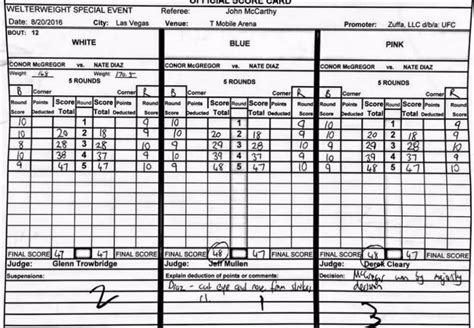 OFFICIAL SCORE CARD
WELTERWEIGHT SPECIAL EVENT Referee: John McCarthy
Date: 8/20/2016 City: Las Vegas Venue: T Mobile Arena Promoter: Zuffa, LLC d/b/a: UFC
BOUT: 12
WHITE BLUE PINK
CONOR McGREGOR vs. NATE DIAZ CONOR McGREGOR vs. NATE DIAZ CONOR McGREGOR vs. NATE DIAZ
Weight 168 Weight 170.5
5 ROUNDS 5 ROUNDS 5 ROUNDS
B Corner Corner R B Corner Corner R B Corner Corner R
Round Score Points Deducted Score Total Round Score Total Points Deducted Round Score Round Score Points Deducted Score Total Round Score Total Points Deducted Round Score Round Score Points Deducted Score Total Round Score Total Points Deducted Round Score
10 1 9 10 1 9 10 1 9
10 20 2 18 9 10 20 2 18 9 10 20 2 18 9
8 28 3 28 10 9 29 3 28 10 9 29 3 28 10
10 38 4 37 9 10 39 4 37 9 10 39 4 37 9
9 47 5 47 10 9 48 5 47 10 9 48 5 47 10
FINAL SCORE 47 47 FINAL SCORE FINAL SCORE 48 47 FINAL SCORE FINAL SCORE 48 47 FINAL SCORE
Judge: Glenn Trowbridge Judge: Jeff Mullen Judge: Derek Cleary
Suspensions: Explain deduction of points or comments: Decision: McGregor won by majority
Diaz - cut eye and nose from strikes decision
2 1 3